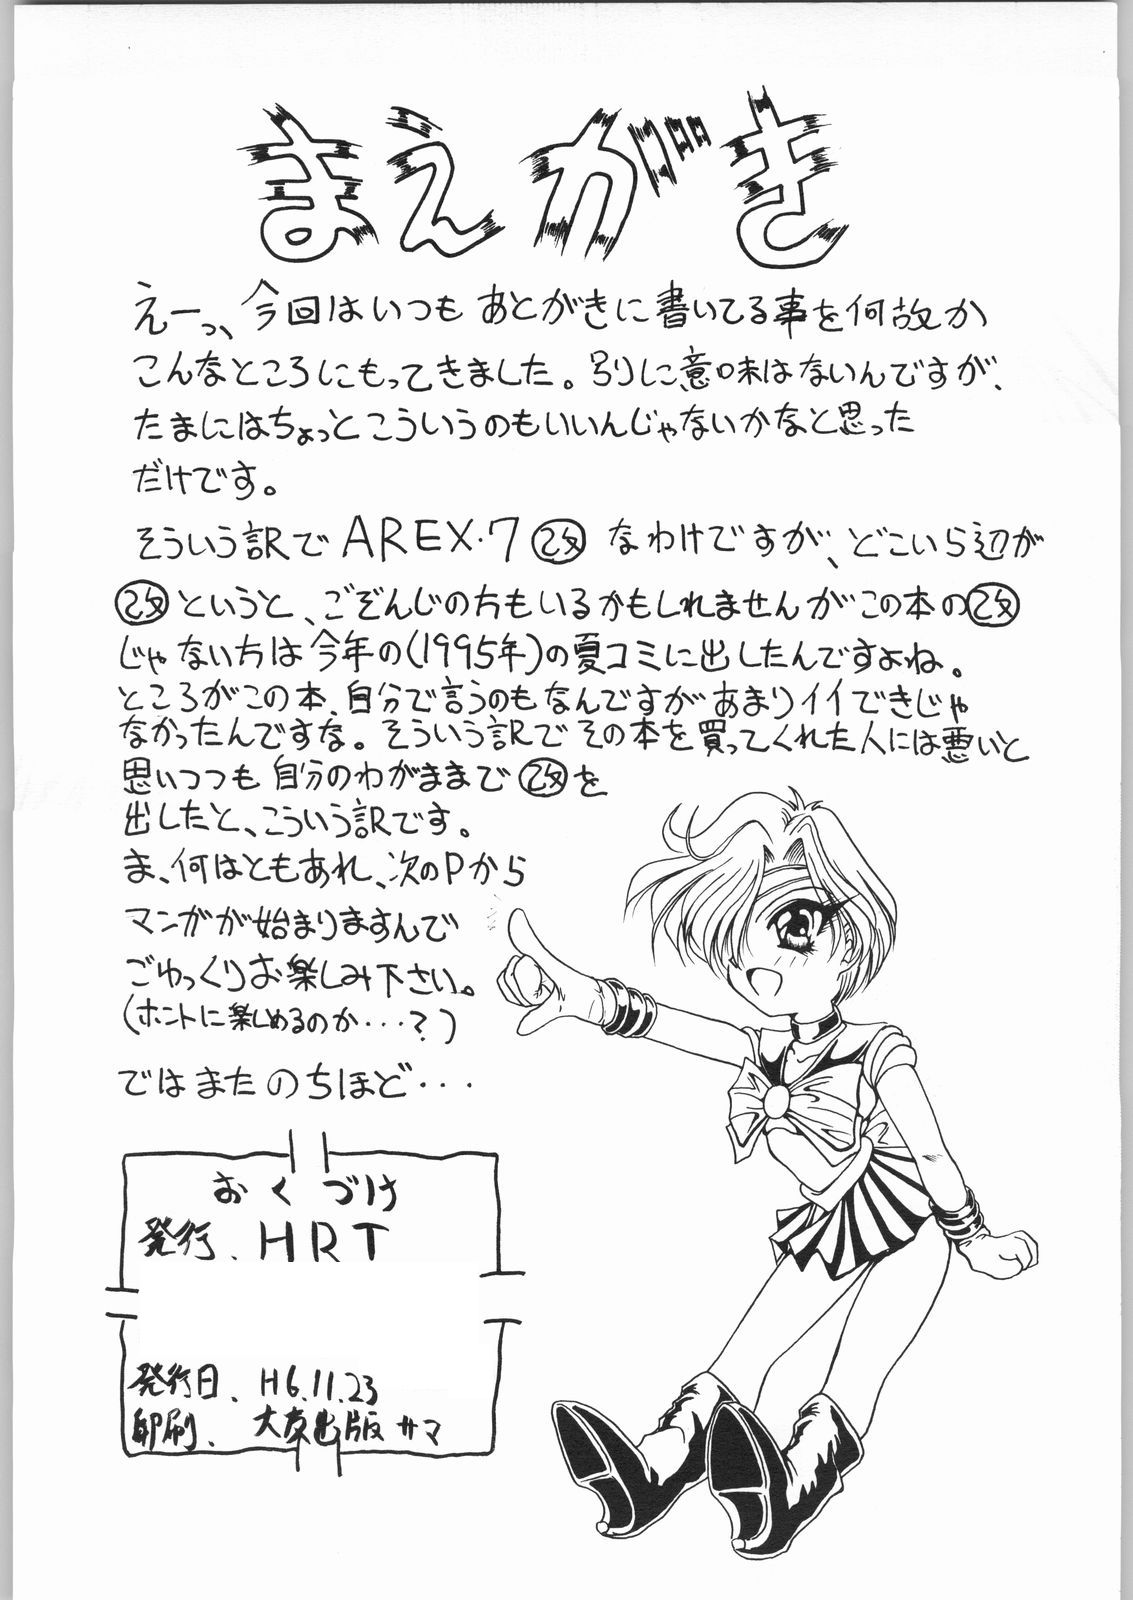 まえがき
えーっ、今回はいつもあとがきに書いてる事を何故か
こんなところにもってきました。別に意味はないんですが、
たまにはちょっとこういうのもいいんじゃないかなと思った
だけです。
そういう訳でAREX・7改なわけですが、どこいら辺が
改というと、ごぞんじの方もいるかもしれませんがこの本の改
じゃない方は今年の(1995年)の夏コミに出したんですよね。
ところがこの本、自分で言うのもなんですがあまりイイできじゃ
なかったんですな。そういう訳でその本を買ってくれた人には悪いと
思いつつも自分のわがままで改を
出したと、こういう訳です。
ま、何はともあれ、次のPから
マンガが始まりますんで
ごゆっくりお楽しみ下さい。
(ホントに楽しめるのか・・・?)
ではまたのちほど・・・
おくづけ
発行.HRT
発行日.H6.11.23
印刷.大友出版サマ